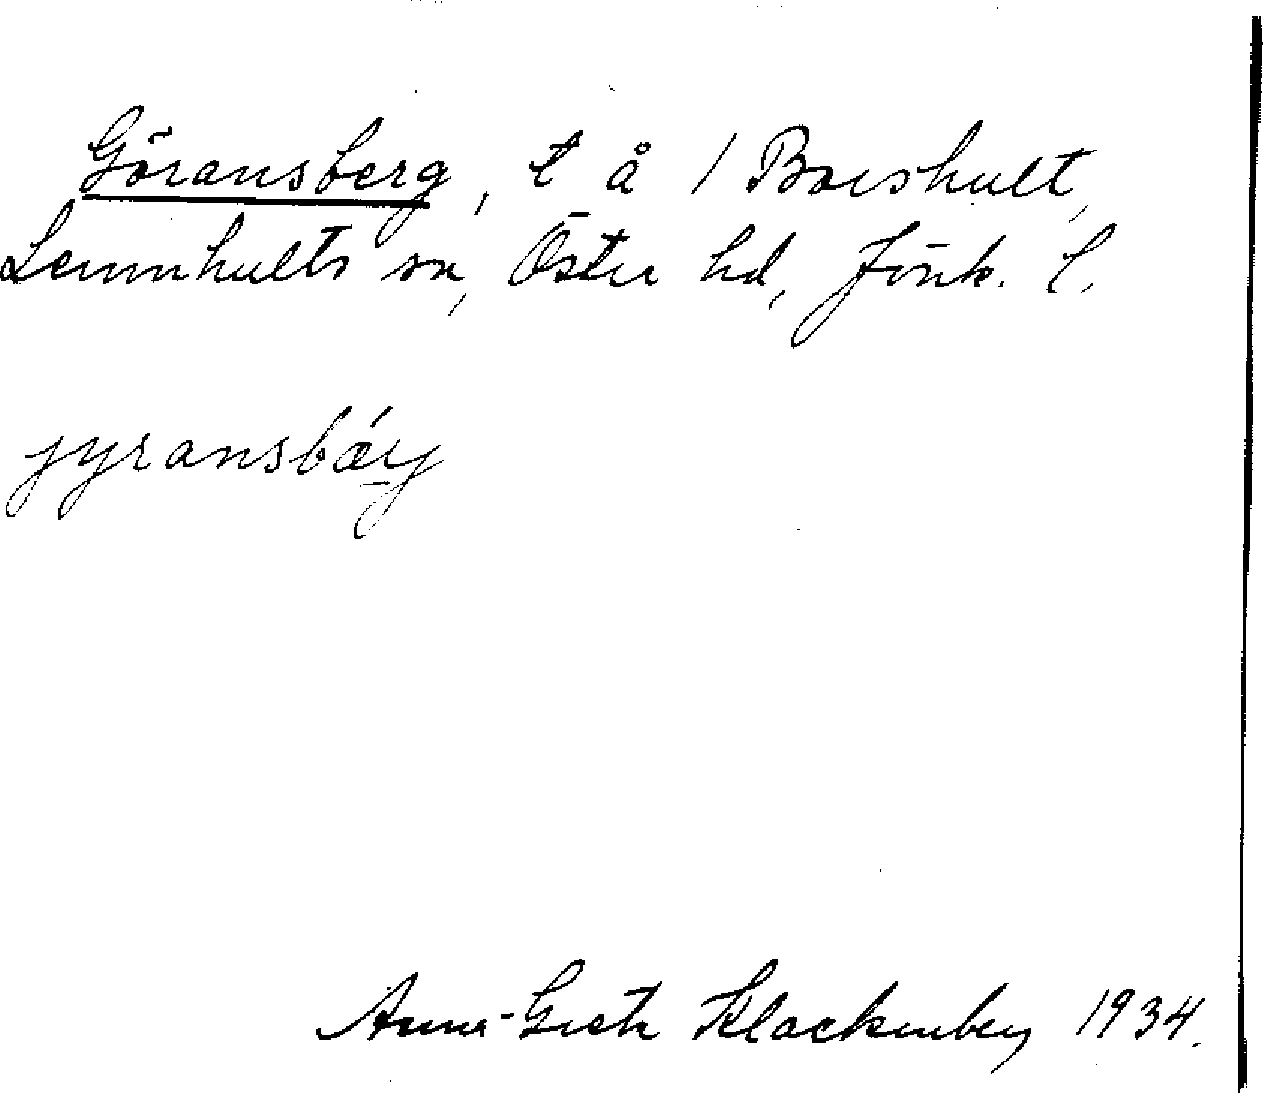 Göransberg, t å 1 Boeshult,
Lemnhults sn, Östra hd, Jönk. l.
jyransbáry
Anna-Greta Klackenberg 1934.